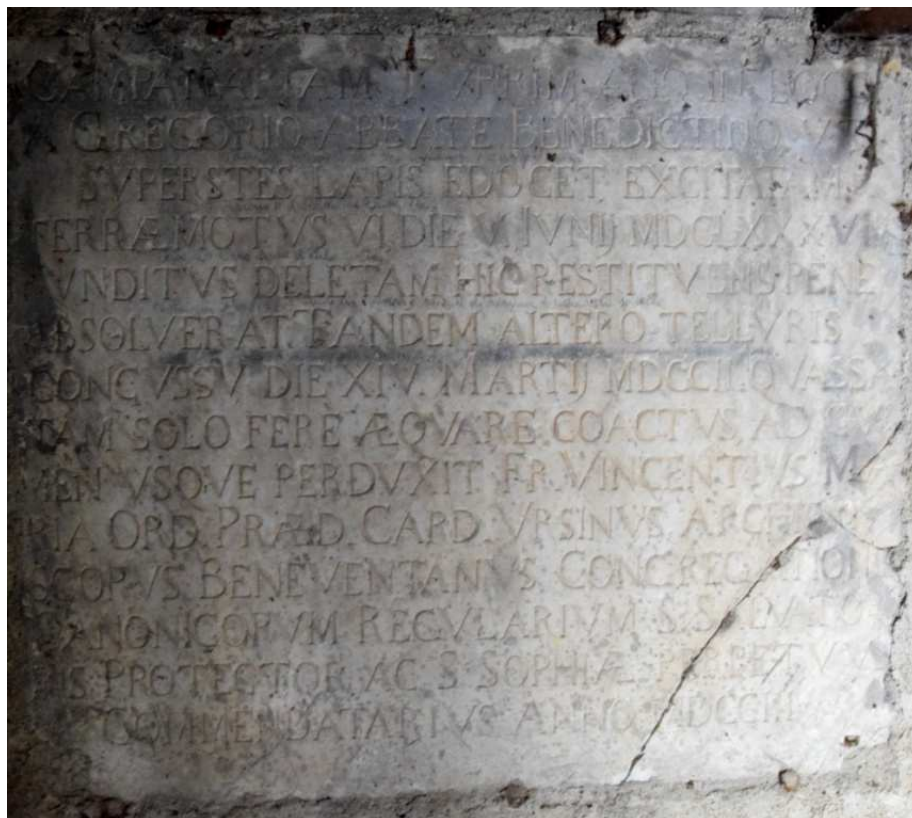 GREGORIO ABBATE BENEDICTINO
SVPERSTES LAPIS EDOCET EXCITATAM
TERRÆMOTVS VI DIE V IVNIJ MDCLXXXVIII
FVNDITVS DELETAM HIC RESTITVENS PENE
ABSOLVERAT TANDEM ALTERO TELLVRIS
CONCVSSV DIE XIV MARTIJ MDCCII QVASSA
TAM SOLO FERE ÆQVARE COACTVS AD
MEN VSQVE PERDVXIT FR. VINCENTIVS MA
RIA ORD. PRÆD. CARD. VRSINVS ARCHIEPI
SCOPVS BENEVENTANVS CONGREGATIONIS
CANONICORVM REGVLARIVM S. SALVATO
RIS PROTECTOR AC S. SOPHIÆ PERPETVVS
COMMENDATARIVS ANNO MDCCIII